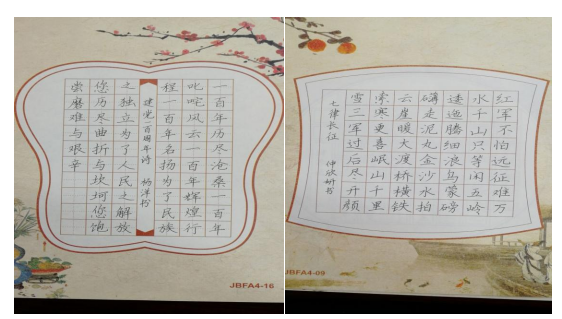 一百年历尽沧桑一百年
叱咤风云一百年辉煌行
程一百年名扬为了民族
建党百周年诗 杨洋书
之独立为了人民之解放
您历尽曲折与坎坷您饱
尝磨难与艰辛
JBFA4-16
红军不怕远征难万
水千山只等闲五岭
逶迤腾细浪乌蒙磅
礴走泥丸金沙水拍
云崖暖大渡桥横铁
索寒更喜岷山千里
雪三军过后尽开颜
七律长征 仲欣妍书
JBFA4-09